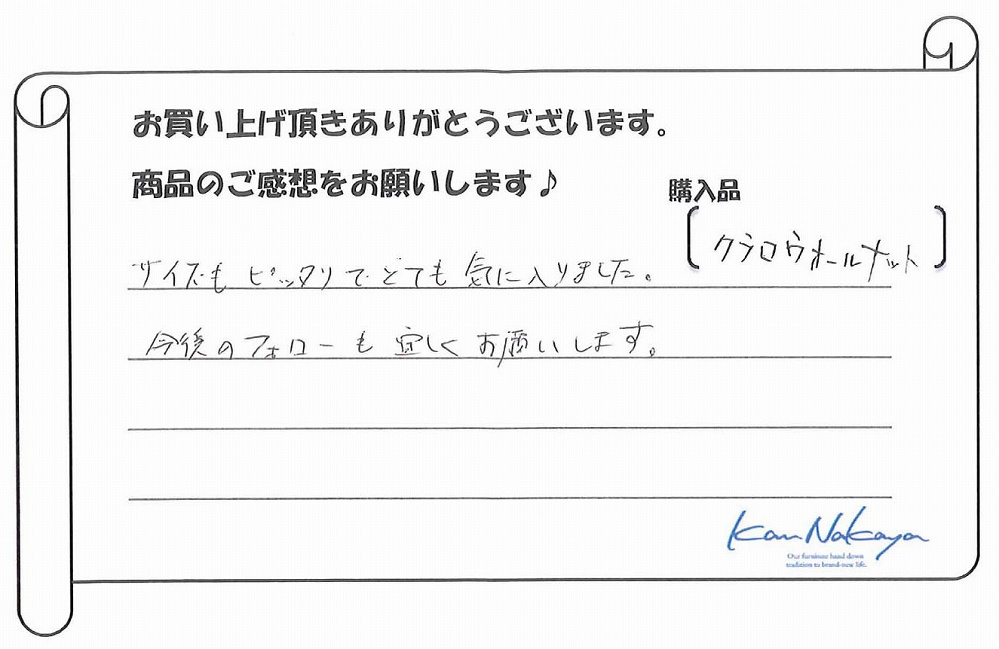 お買い上げ頂きありがとうございます。
商品のご感想をお願いします♪
購入品
クラロウォールナット
サイズもピッタリでとても気に入りました。
今後のフォローも宜しくお願いします。
Kan Nakaya
Our furniture hand down
tradition to brand-new life.